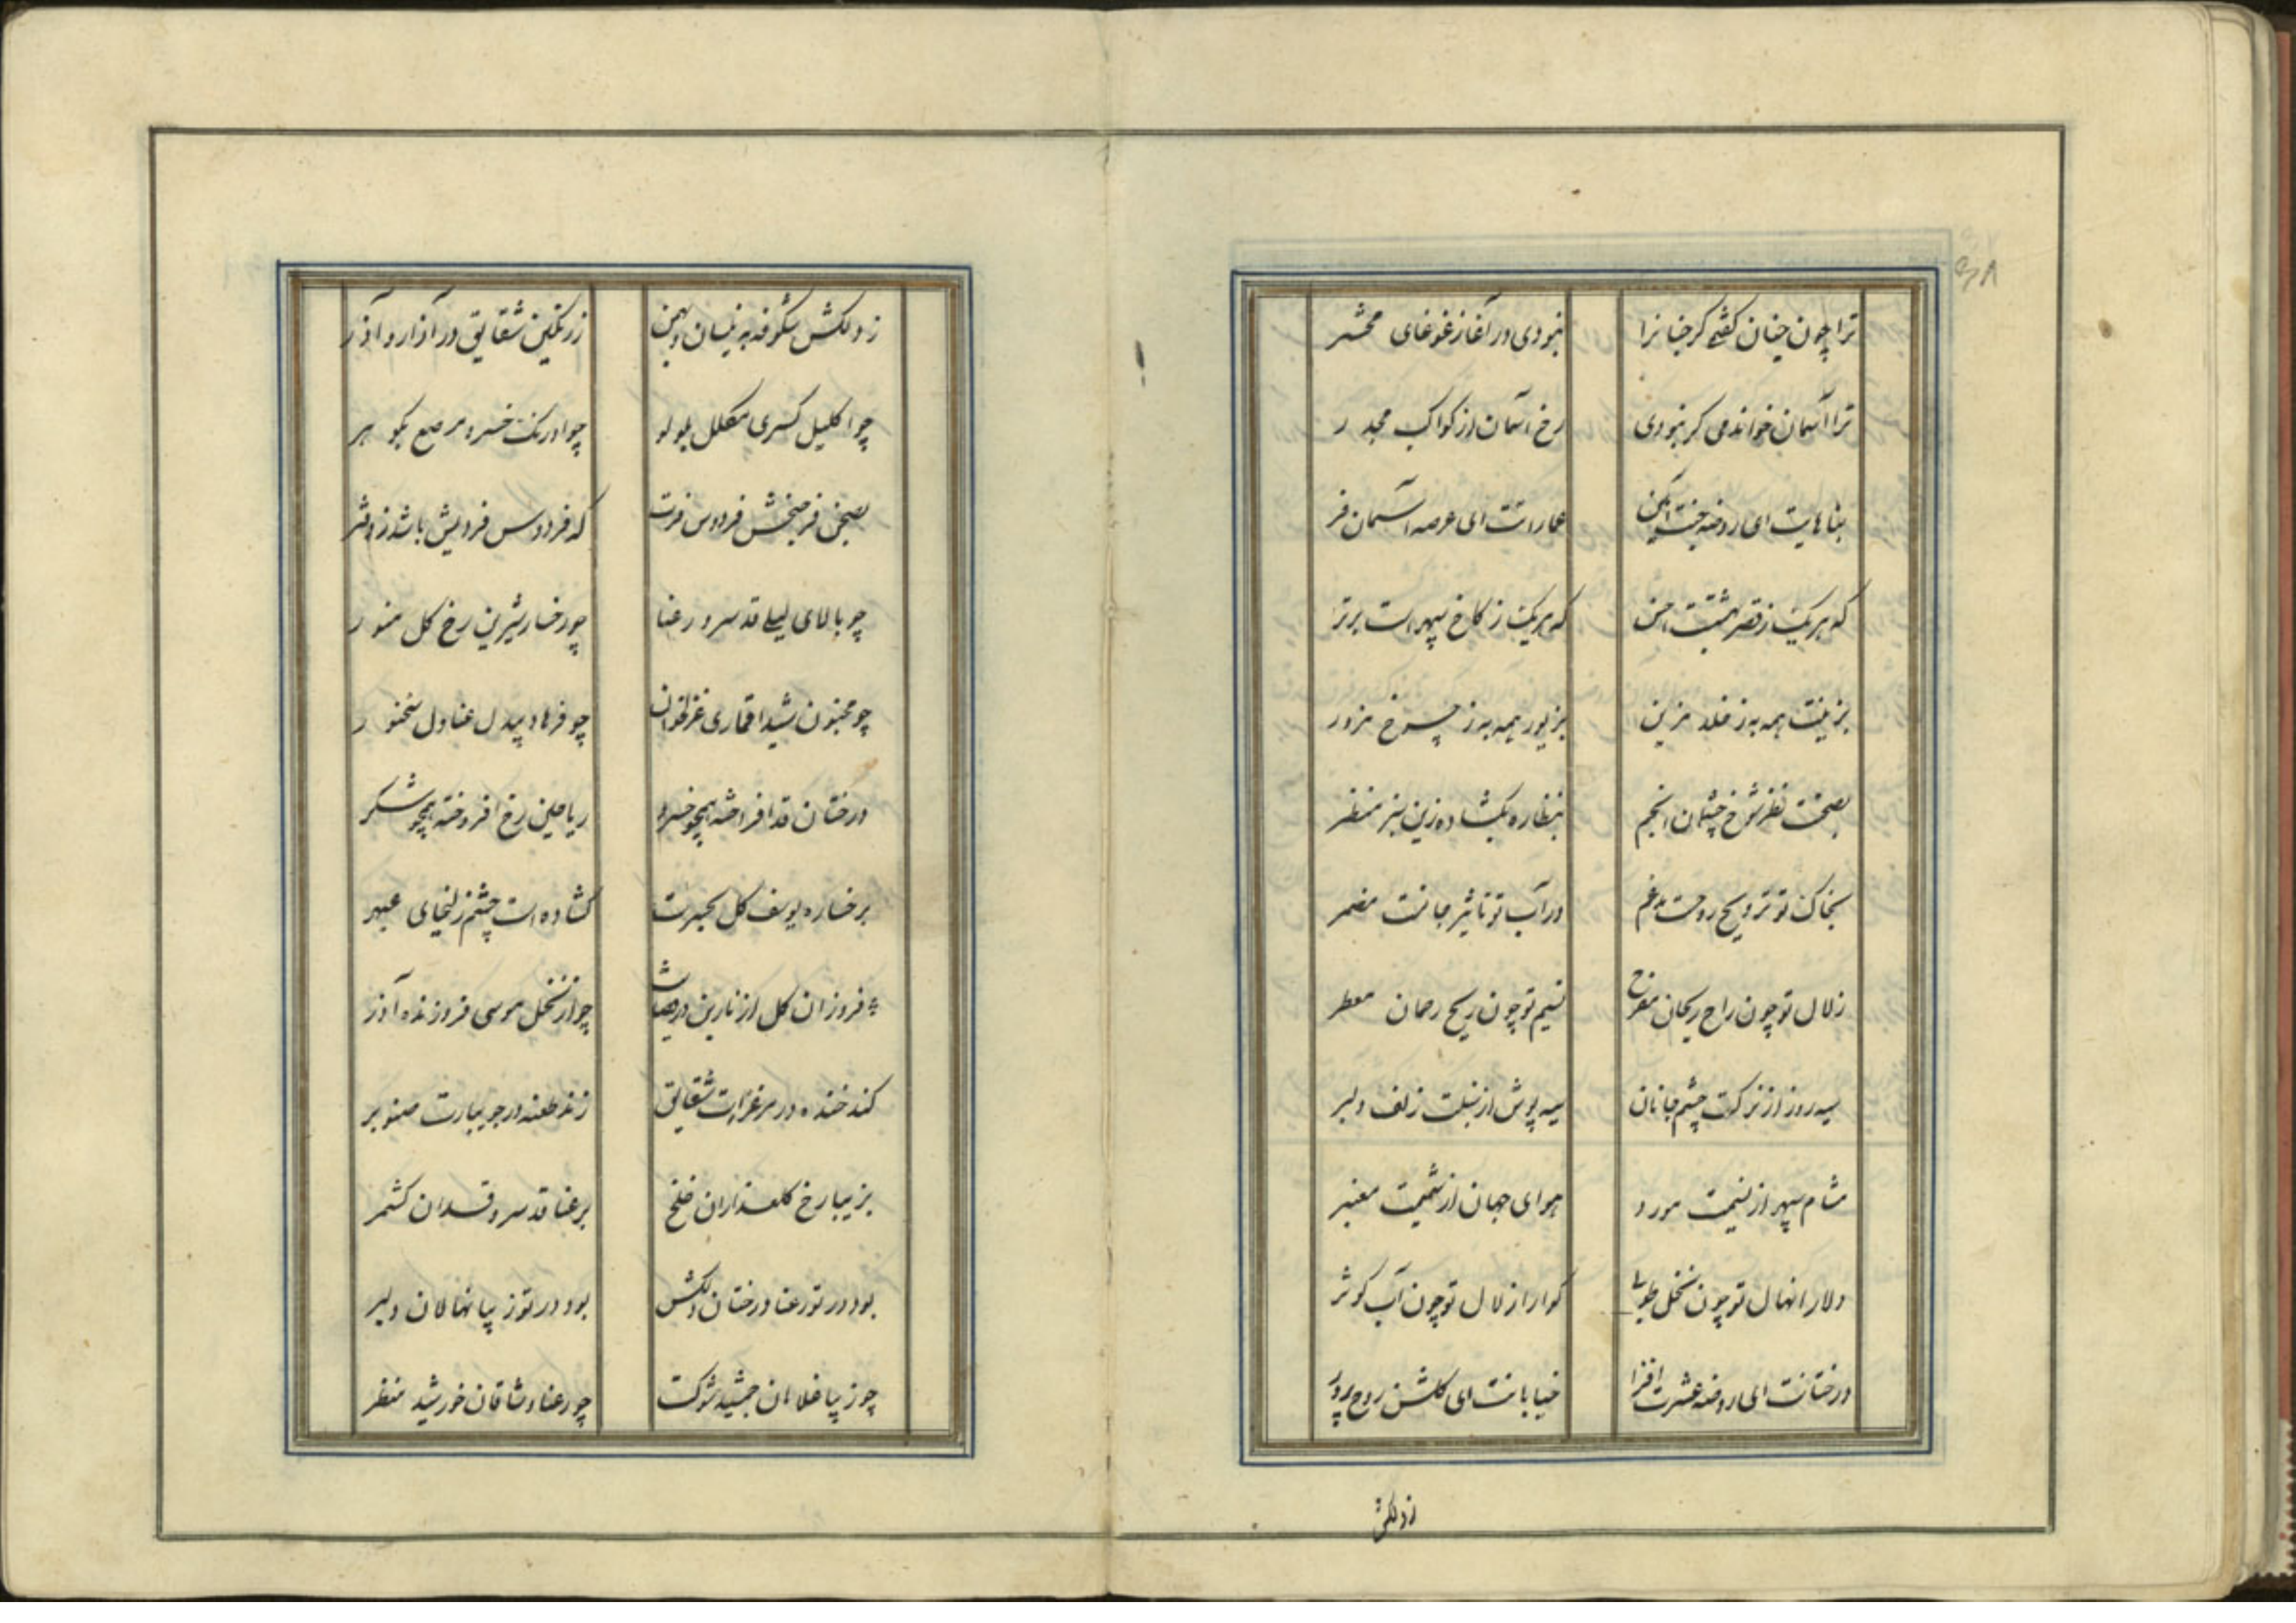 ۳۸
ترا چون جنان گفتمی گر جنانرا نبودی در آغاز غوغای محشر
ترا آسمان خواندمی گر نبودی رخ آسمان از کواکب مجدر
بناهایت ای روضه جنت آیین عماراتت ای عرصه آسمان فر
که هر یک ز قصر بهشتست احسن که هر یک ز کاخ سپهر است برتر
بزینت همه به ز خلد مزین بزیور همه به ز چرخ مزور
بصحنت نظر شوخ چشمان انجم بنظاره بگشاده زین سبز منظر
بخاک تو ترویح روحست مدغم در آب تو تاثیر جانست مضمر
زلال تو چون راح ریحان مفرح نسیم تو چون ریح رحمان معطر
سیه روز از نرگست چشم جانان سیه پوش از سنبلت زلف دلبر
مشام سپهر از نسیمت مورد هوای جهان از شمیمت معنبر
دلارا نهال تو چون نخل طوبی گوارا زلال تو چون آب کوثر
درختانت ای روضه عشرت افزا خیابانت ای گلشن روح پرور
ز دلکش
ز دلکش شکوفه به نیسان و بهمن ز رنگین شقایق در آذار و آذر
چو اکلیل کسری مکلل بلولو چو اورنگ خسرو مرصع بگوهر
بصحن فرحبخش فردوس فرت که فردوس فردیش باشد ز دفتر
چو بالای لیلی قد سرو رعنا چو رخسار شیرین رخ گل منور
چو مجنون شیدا قماری غزلخوان چو فرهاد بیدل عنادل سخنور
درختان قد افراخته همچو خسرو ریاحین رخ افروخته همچو شکر
برخساره یوسف گل بحیرت گشاده است چشم زلیخای عبهر
فروزان گل از نارین درختت چو از نخل موسی فروزنده آذر
کند خنده در مرغزارت شقایق زند طعنه در جویبارت صنوبر
بزیبا رخ گلعذاران خلخ برعنا قد سرو قدان کشمر
بود در تو رعنا درختان دلکش بود در تو زیبا نهالان دلبر
چو زیبا غلامان جمشید شوکت چو رعنا وشاقان خورشید منظر